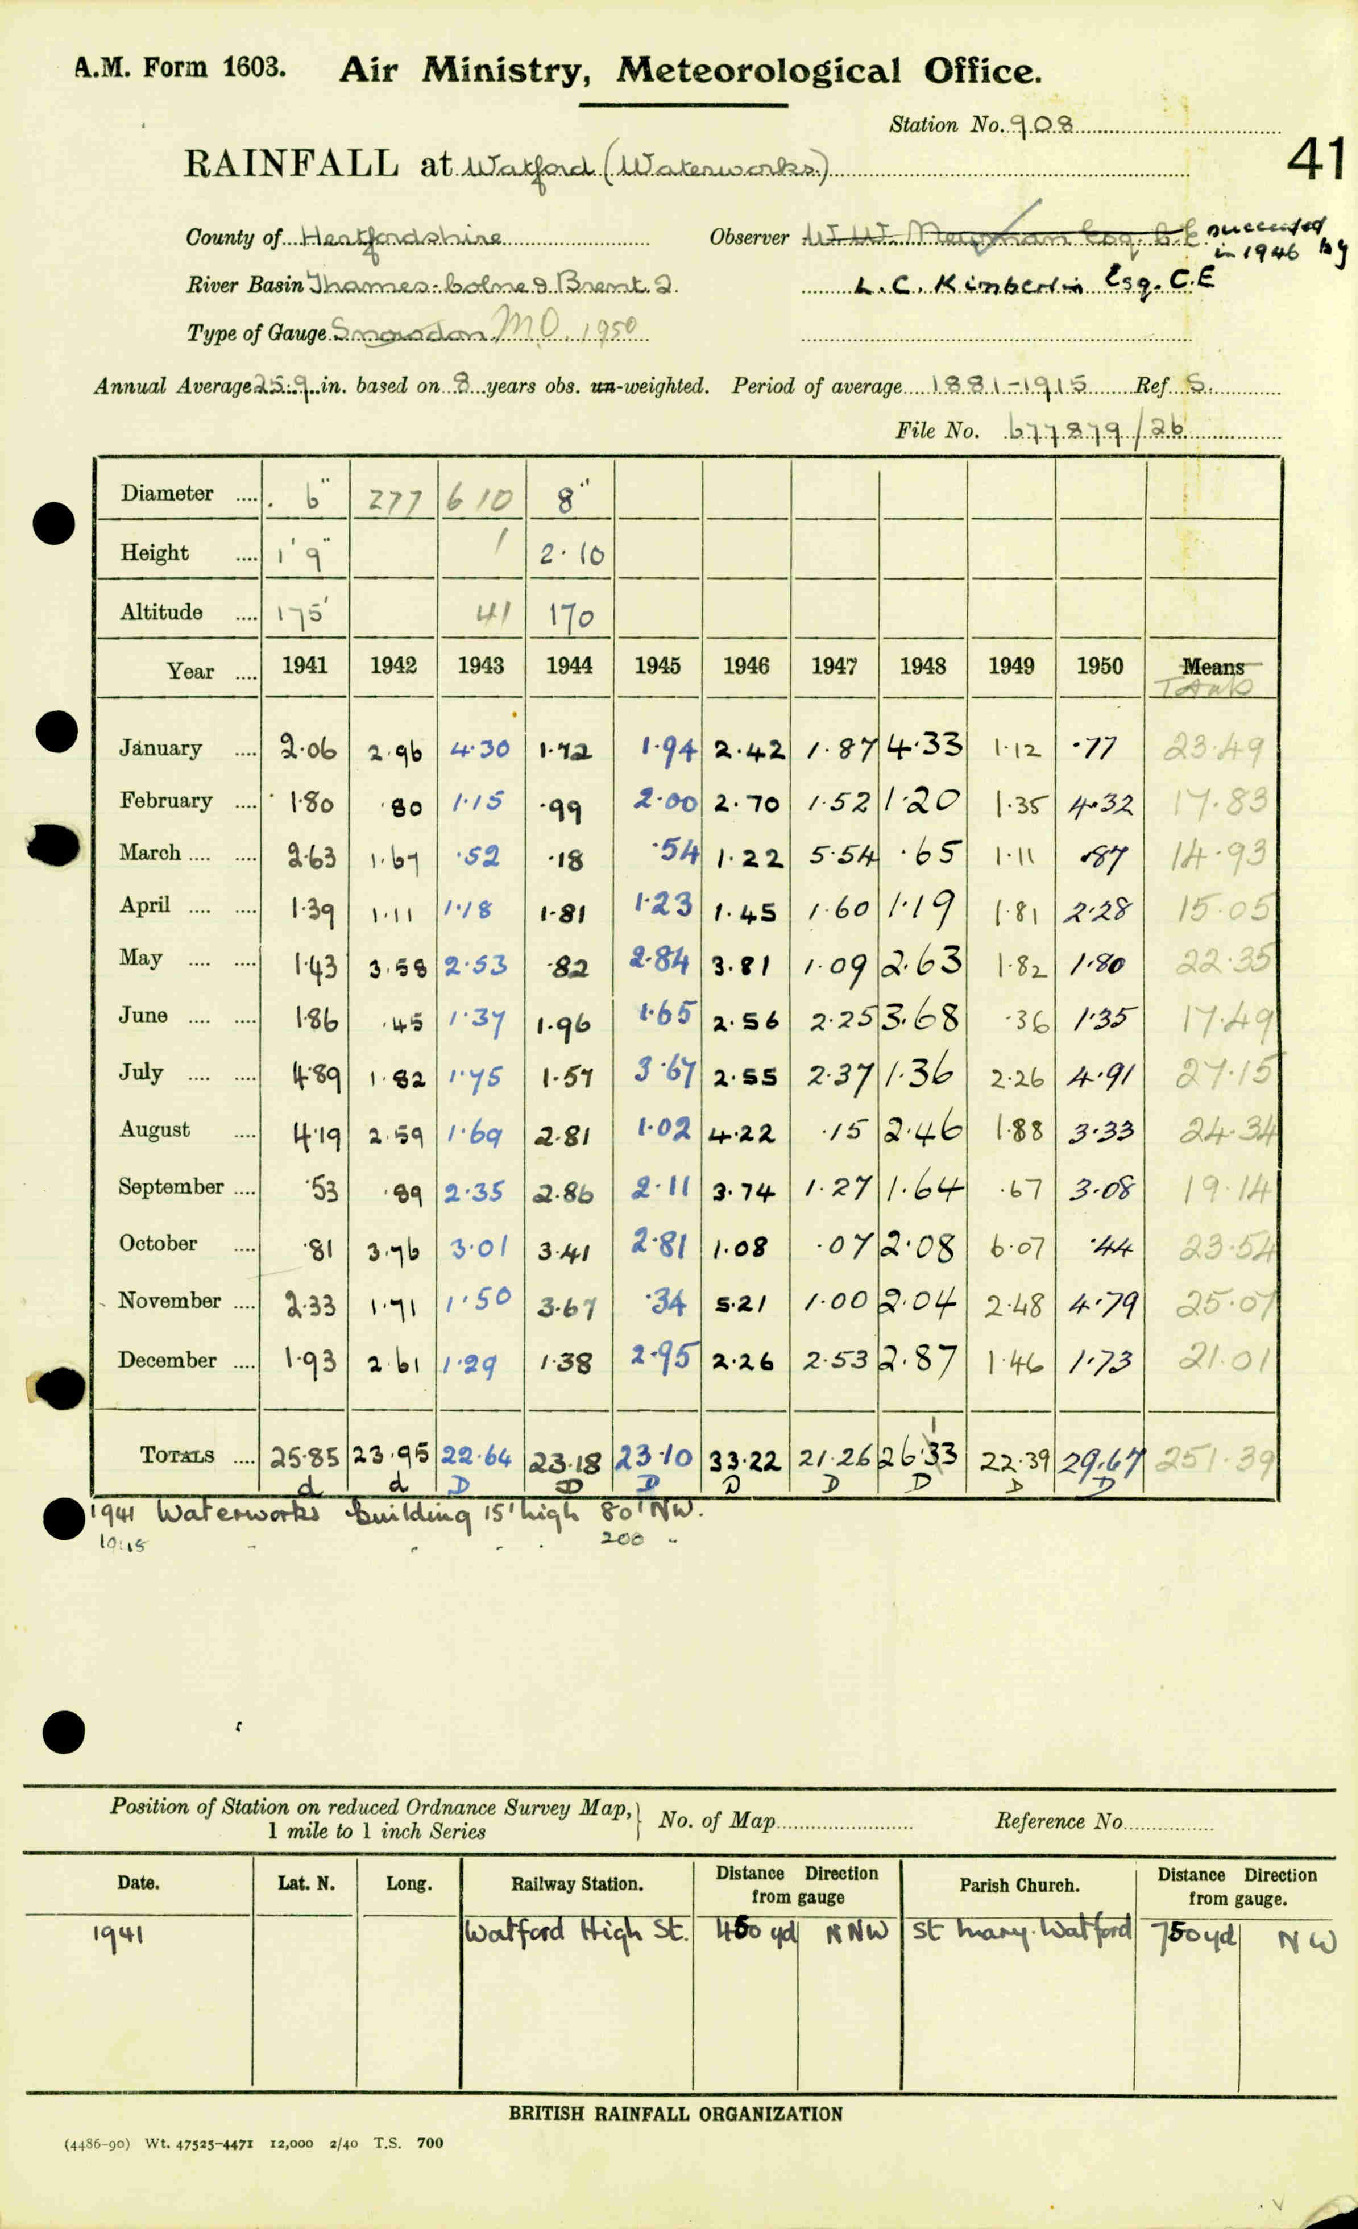 A.M. Form 1603. Air Ministry, Meteorological Office.
Station No. 908
41
RAINFALL at Watford (Waterworks)
County of Hertfordshire Observer W.W. Newman Esq. C.E. succeeded
in 1946 by
River Basin Thames-Colne & Brent. 2. L.C. Kimberlin Esq. C.E
Type of Gauge Snowdon M.O. 1950
Annual Average 25.9 in. based on 8 years obs. un-weighted. Period of average 1881-1915 Ref S.
File No. 677879/26
Diameter .... 6" 277 610 8"
Height .... 1'9" 1 2.10
Altitude .... 175' 41 170
Year .... 1941 1942 1943 1944 1945 1946 1947 1948 1949 1950 Means
Totals
January .... 2.06 2.96 4.30 1.72 1.94 2.42 1.87 4.33 1.12 .77 23.49
February .... 1.80 .80 1.15 .99 2.00 2.70 1.52 1.20 1.35 4.32 17.83
March .... .... 2.63 1.67 .52 .18 .54 1.22 5.54 .65 1.11 .87 14.93
April .... .... 1.39 1.11 1.18 1.81 1.23 1.45 1.60 1.19 1.81 2.28 15.05
May .... .... 1.43 3.58 2.53 .82 2.84 3.81 1.09 2.63 1.82 1.80 22.35
June .... .... 1.86 .45 1.37 1.96 1.65 2.56 2.25 3.68 .36 1.35 17.49
July .... .... 4.89 1.82 1.75 1.57 3.67 2.55 2.37 1.36 2.26 4.91 27.15
August .... 4.19 2.59 1.69 2.81 1.02 4.22 .15 2.46 1.88 3.33 24.34
September .... .53 .89 2.35 2.86 2.11 3.74 1.27 1.64 .67 3.08 19.14
October .... .81 3.76 3.01 3.41 2.81 1.08 .07 2.08 6.07 .44 23.54
November .... 2.33 1.71 1.50 3.67 .34 5.21 1.00 2.04 2.48 4.79 25.07
December .... 1.93 2.61 1.29 1.38 2.95 2.26 2.53 2.87 1.46 1.73 21.01
TOTALS .... 25.85 23.95 22.64 23.18 23.10 33.22 21.26 26.13 22.39 29.67 251.39
d d D D D D D D D D
1941 Waterworks building 15' high 80' NW.
1945 " " " " 200 "
Position of Station on reduced Ordnance Survey Map, 1 mile to 1 inch Series } No. of Map Reference No.
Date. Lat. N. Long. Railway Station. Distance Direction from gauge Parish Church. Distance Direction from gauge.
1941 Watford High St. 450 yd NNW St Mary. Watford 750 yd NW
BRITISH RAINFALL ORGANIZATION
(4486-90) Wt. 47525-4471 12,000 2/40 T.S. 700